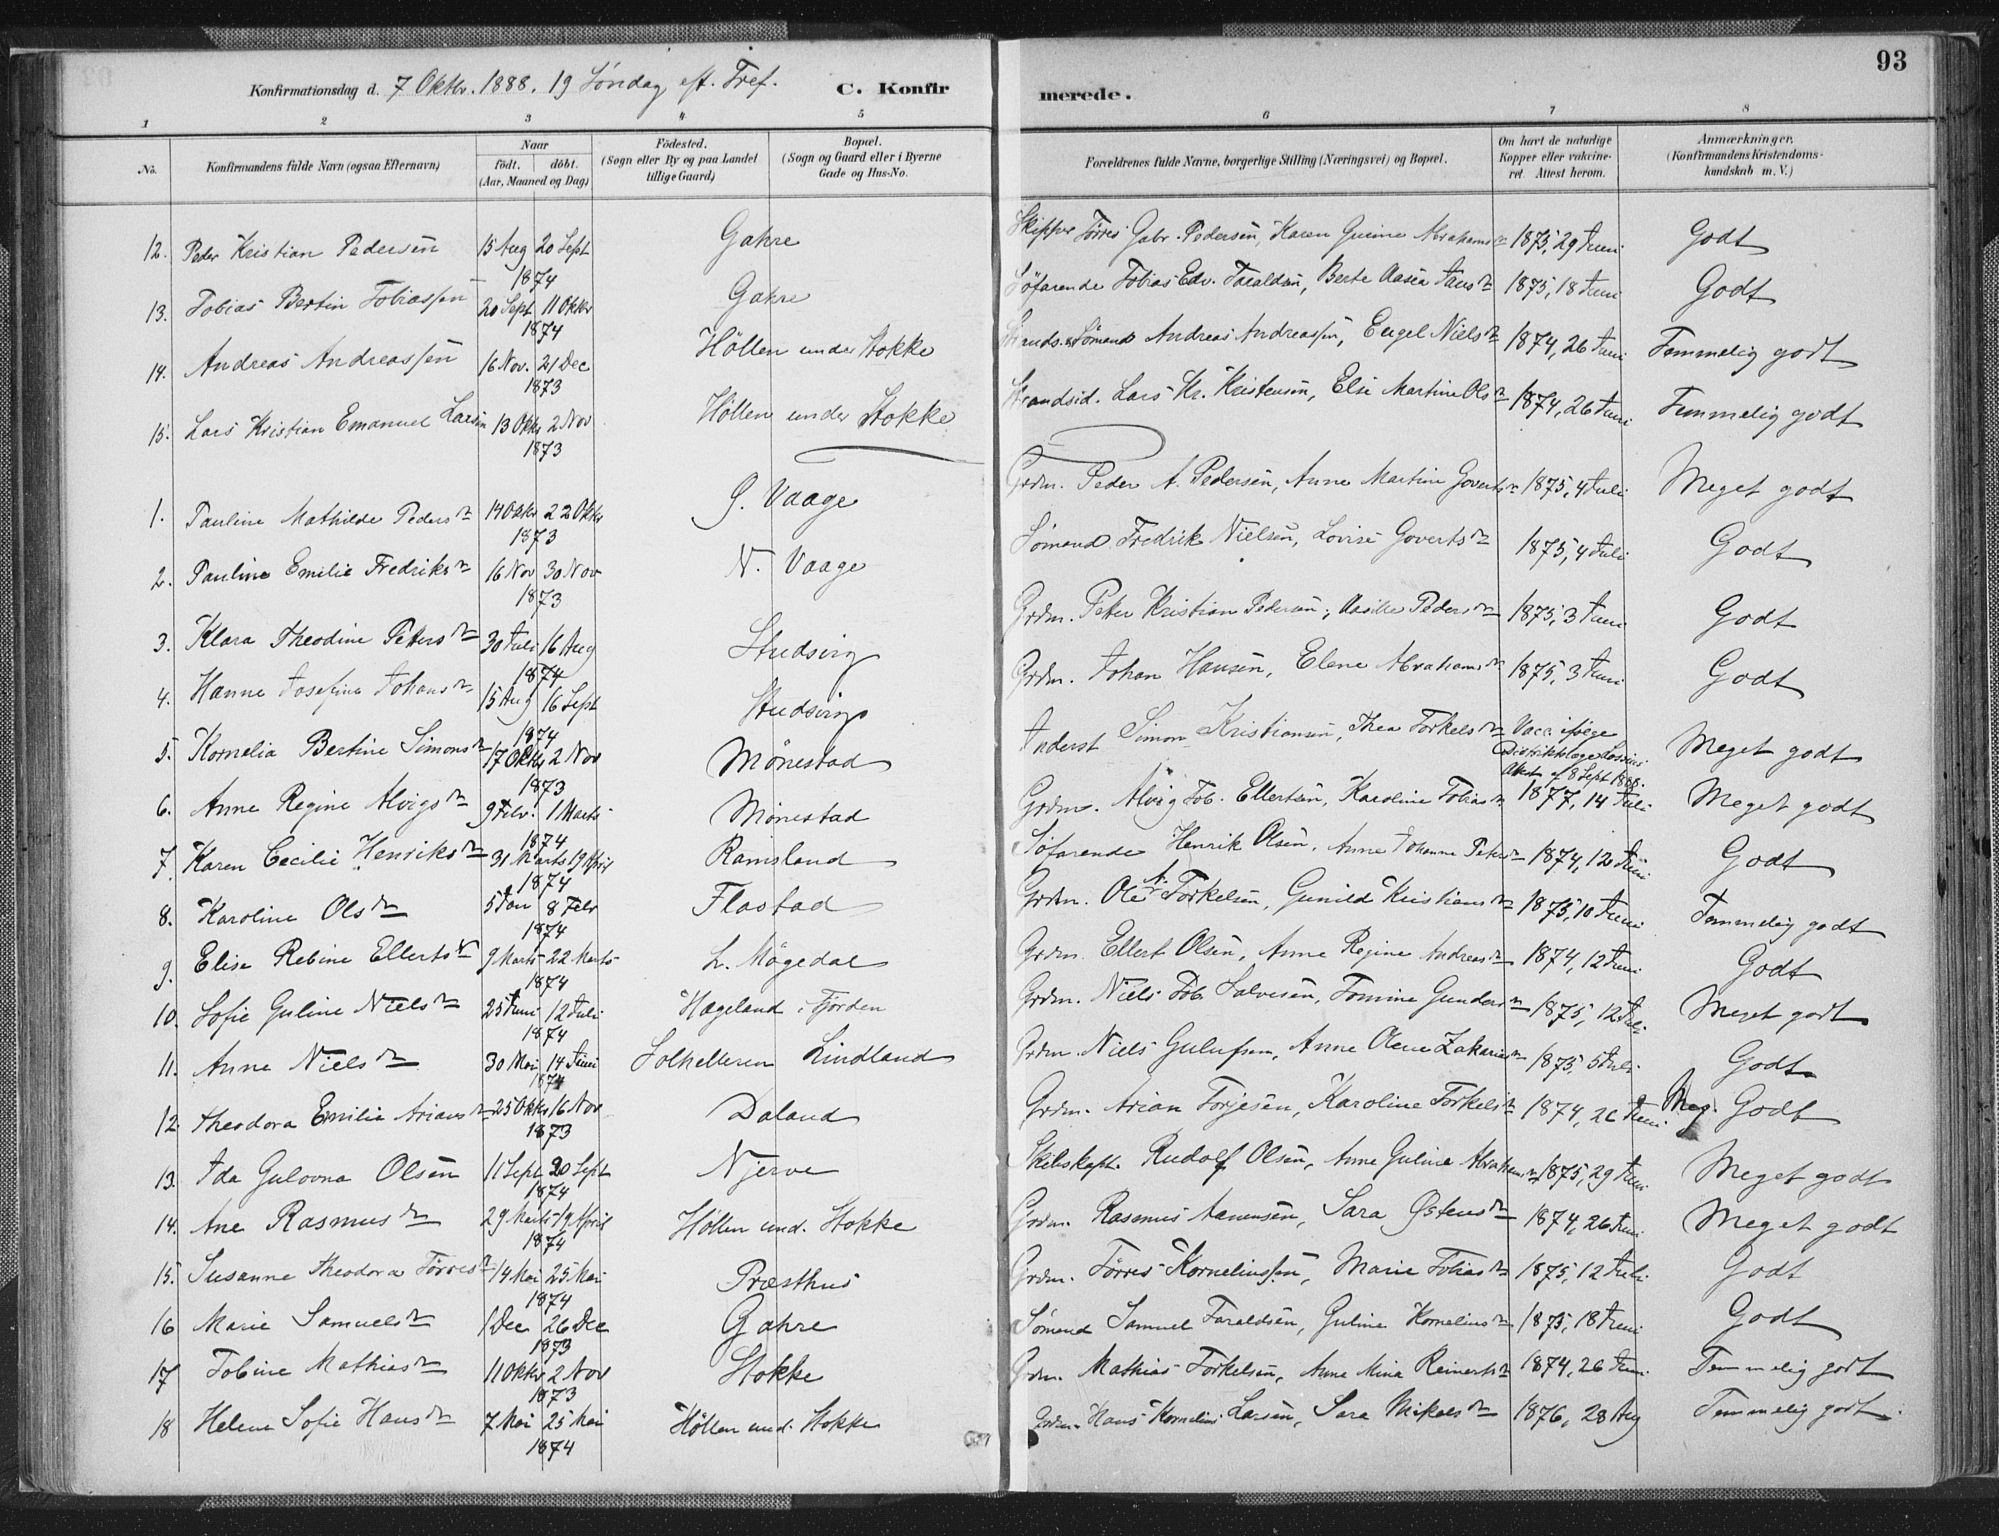 93
Konfirmationsdag d. 7 Oktbr. 1888. 19 Søndag eft. Tref. C. Konfirmerede.
1 2 3 4 5 6 7 8
No. Konfirmandens fulde Navn (ogsaa Efternavn) Naar födt. döbt. (Aar, Maaned og Dag) Födested. (Sogn eller By og paa Landet tillige Gaard) Bopæl. (Sogn og Gaard eller i Byerne Gade og Hus-No. Forældrenes fulde Navne, borgerlige Stilling (Næringsvei) og Bopæl. Om havt de naturlige Kopper eller vakcineret. Attest herom. Anmærkninger. (Konfirmandens Kristendomskundskab m. V.)
12. Peder Kristian Pedersen 15 Aug 20 Sept 1874 Gahre Skipper Törres Gabr. Pedersen, Karen Gurine Abrahamsdr 1875, 29 Juni Godt
13. Tobias Bertin Tobiassen 20 Sept 11 Oktbr 1874 Gahre Söfarende Tobias Edv. Taraldsen, Berte Aasea Jansdr 1875, 18 Juni Godt
14. Andreas Andreassen 16 Nov. 21 Dec 1873 Höllen under Stokke Sömand Andreas Andreassen, Engel Nielsdr 1874, 26 Juni Temmelig godt
15. Lars Kristian Emanuel Larsen 13 Oktbr 2 Nov 1873 Höllen under Stokke Strandsid. Lars Kr. Kristensen, Elsi Martine Olsdr 1874, 26 Juni Temmelig godt
1. Pauline Mathilde Pedersdr 14 Oktbr 22 Oktbr 1873 S. Vaage Grdm. Peder A. Pedersen, Anne Martine Govertsdr 1875, 4 Juli Meget godt
2. Pauline Emilie Fredriksdr 16 Nov 30 Nov 1873 N. Vaage Sömand Fredrik Nielsen, Lovise Govertsdr 1875, 4 Juli Godt
3. Klara Theodine Petersdr 30 Juli 16 Aug 1874 Studsvig Grdm. Peter Kristian Pedersen, Aasille Pedersdr 1875, 3 Juni Godt
4. Hanne Josefine Johansdr 15 Aug 16 Sept 1874 Studsvig Grdm. Johan Hansen, Elene Abrahamsdr 1875, 3 Juni Godt
5. Kornelia Bertine Simonsdr 17 Oktbr 2 Nov 1873 Mönestad Inderst Simon Kristiansen, Thea Torkelsdr Vacc. ifølge Distriktslæge Attest af 8 Sept 1888. Meget godt
6. Anne Regine Alvigsdr 9 Febr. 1 Marts 1874 Mönestad Grdm. Alvig Tob. Ellertsen, Karoline Tobiasdr 1877, 14 Juli Meget godt
7. Karen Cecilie Henriksdr 31 Marts 19 April 1874 Ramsland Söfarende Henrik Olsen, Anne Johanne Petersdr 1874, 12 Juni Godt
8. Karoline Olsdr 5 Jan 8 Febr 1874 Flastad Grdm. Ole A. Torkelsen, Gunild Kristiansdr 1875, 10 Juni Temmelig godt
9. Elise Rebine Ellertsdr 9 Marts 22 Marts 1874 L. Mögedal Grdm. Ellert Olsen, Anne Regine Andreasdr 1874, 12 Juni Godt
10. Sofie Guline Nielsdr 25 Juni 12 Juli 1874 Hægeland i Fjorden Grdm. Niels Tob. Salvesen, Tomine Gundersdr 1875, 12 Juli Meget godt
11. Anne Nielsdr 30 Mai 14 Juni 1874 Solhelleren Lindland Grdm. Niels Gulufsen, Anne Olene Zakariasdr 1875, 5 Juli Godt
12. Theodora Emilie Ariansdr 25 Oktbr 16 Nov 1873 Daland Grdm. Arian Torjesen, Karoline Torkelsdr 1874, 26 Juni. Meg. Godt
13. Ida Gulovna Olsen 11 Sept 20 Sept 1874 Njerve Skibskapt. Rudolf Olsen, Anne Guline Abrahamsdr 1875, 29 Juni Meget godt
14. Ane Rasmusdr 29 Marts 19 April 1874 Höllen und. Stokke Grdm. Rasmus Aanensen, Sara Østensdr 1874, 26 Juni Meget godt
15. Susanne Theodora Törresdr 14 Mai 25 Mai 1874 Præsthus Grdm. Törres Korneliussen, Marie Tobiasdr 1875, 12 Juli Godt
16 Marie Samuelsdr 1 Dec 26 Dec 1873 Gahre Sömand Samuel Taraldsen, Guline Korneliusdr 1875, 18 Juni Godt
17 Tobine Mathiasdr 11 Oktbr 2 Nov 1873 Stokke Grdm. Mathias Torkelsen, Anne Mina Reinertsdr 1874, 26 Juni Temmelig godt
18 Helene Sofie Hansdr 7 Mai 25 Mai 1874 Höllen und. Stokke Grdm. Hans Kornelius Larsen, Sara Mikalsdr 1876, 28 Aug Temmelig godt.